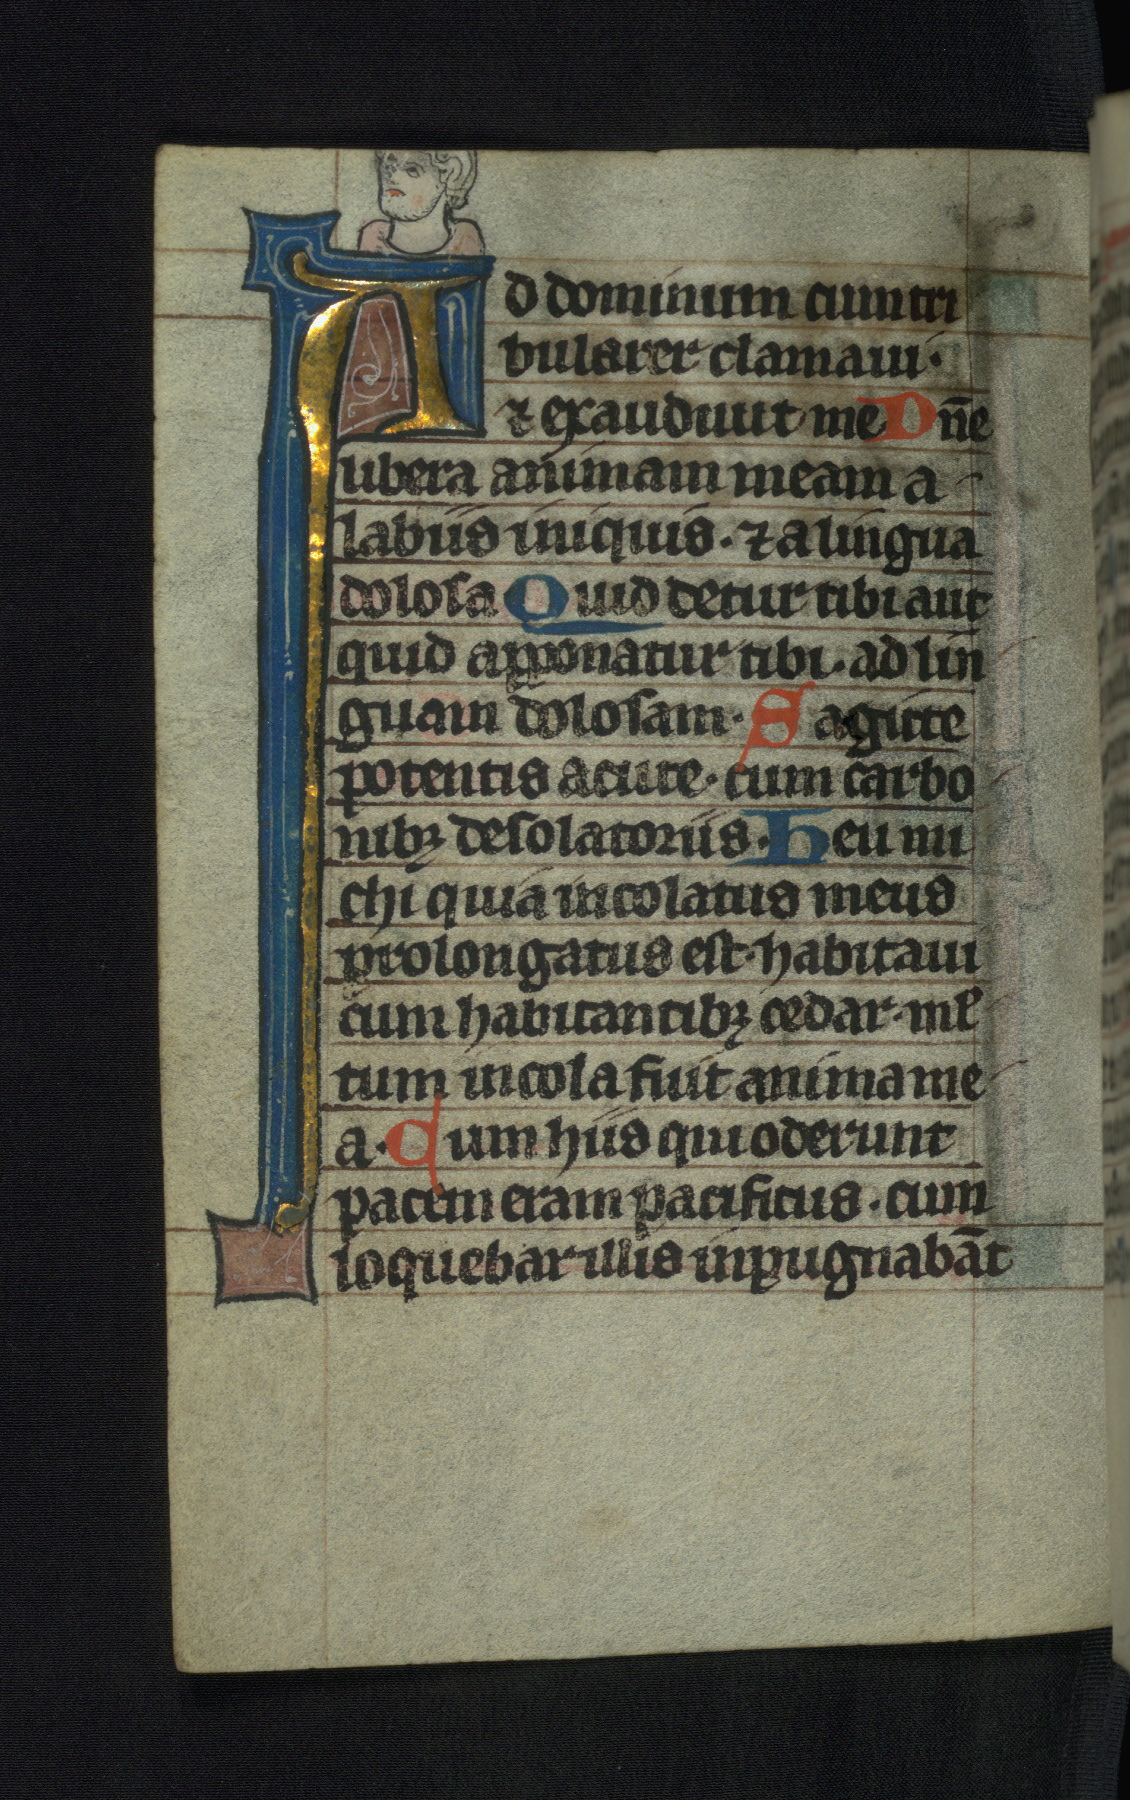 Ad dominum cum tri
bularer clamaui·
⁊ exaudiuit me Dn̄e
libera animam meam a
labiis iniquis· ⁊ a lingua
dolosa Quid detur tibi aut
quid apponatur tibi· ad lin
guam dolosam· Sagitte
potentis acute· cum carbo
nibꝫ desolatoriis· Heu mi
chi quia incolatus meus
prolongatus est· habitaui
cum habitantibꝫ cedar· ml
tum incola fuit anima me
a· Cum hiis qui oderunt
pacem eram pacificus· cum
loquebar illis inpugnabāt